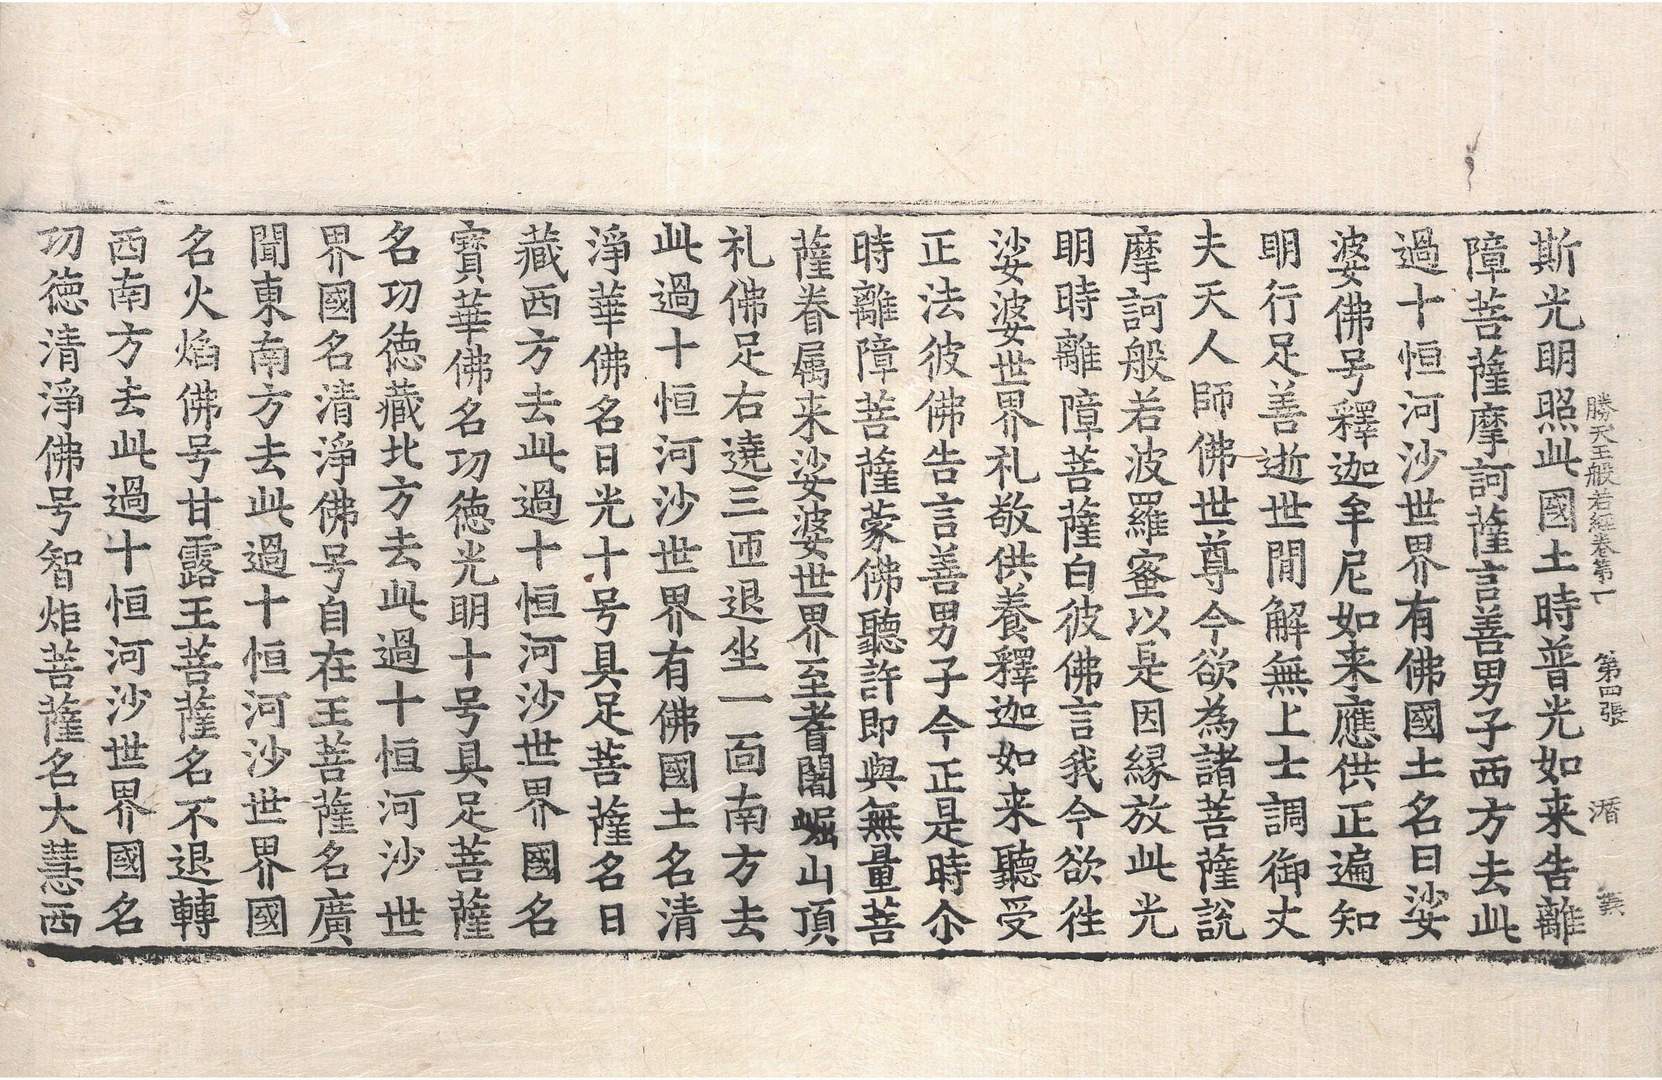 勝天王般若經卷第一　第四張　潛　義
斯光明照此國土時普光如来告離
障菩薩摩訶薩言善男子西方去此
過十恒河沙世界有佛國土名曰娑
婆佛号釋迦牟尼如来應供正遍知
明行足善逝世間解無上士調御丈
夫天人師佛世尊今欲為諸菩薩說
摩訶般若波羅蜜以是因緣放此光
明時離障菩薩白彼佛言我今欲徃
娑婆世界礼敬供養釋迦如来聽受
正法彼佛告言善男子今正是時尒
時離障菩薩蒙佛聽許即與無量菩
薩眷属来娑婆世界至耆闍崛山頂
礼佛足右遶三匝退坐一面南方去
此過十恒河沙世界有佛國土名清
淨華佛名日光十号具足菩薩名日
藏西方去此過十恒河沙世界國名
寶華佛名功德光明十号具足菩薩
名功德藏北方去此過十恒河沙世
界國名清淨佛号自在王菩薩名廣
聞東南方去此過十恒河沙世界國
名火焰佛号甘露王菩薩名不退轉
西南方去此過十恒河沙世界國名
功德清淨佛号智炬菩薩名大慧西